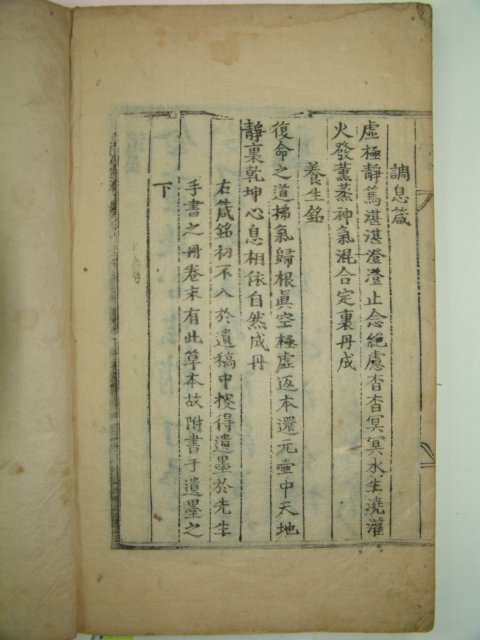 調息箴
虛極靜篤湛湛澄澄止念絶慮杳杳冥冥水生澆灌
火發薰蒸神氣混合定裏丹成
養生銘
復命之道拂氣歸根眞空極虛返本還元壺中天地
靜裏乾坤心息相依自然成丹
右箴銘初不入於遺稿中搜得遺墨於先生
手書之册卷末有此草本故附書于遺墨之
下